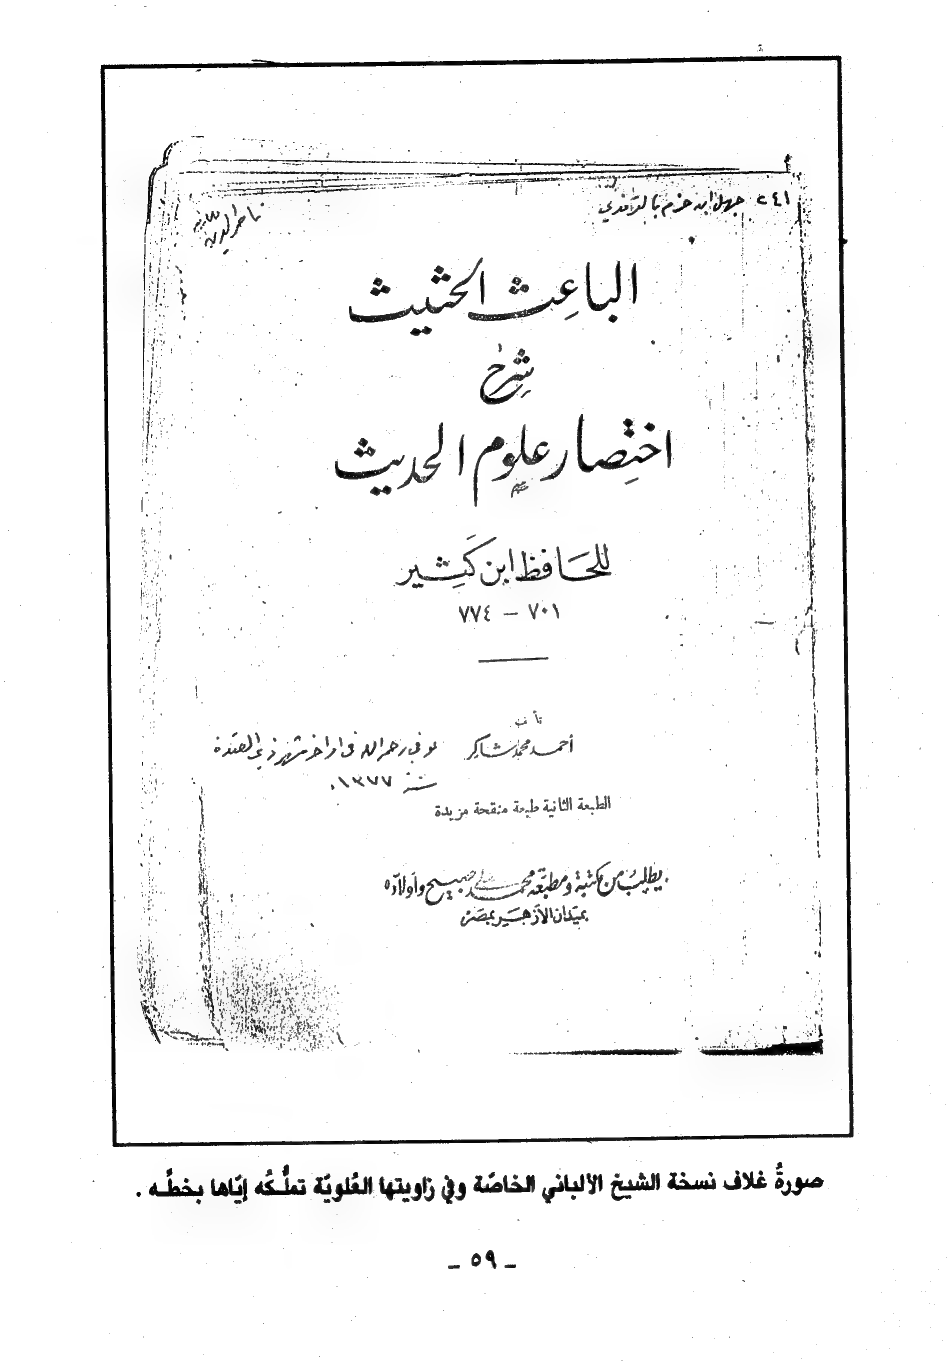 ٢٤١ جهل ابن حزم بالترمذي
ناصر الدين
الباعِث الحثيث
شرح
اختصار علوم الحديث
للحافظ ابن كثير
٧٠١ – ٧٧٤
تأليف
أحمد محمد شاكر
توفي رحمه الله في اواخر شهر ذي القعدة
سنة ١٣٧٧.
الطبعة الثانية طبعة منقحة مزيدة
يطلب من مكتبة ومطبعة محمد علي صبيح وأولاده
بميدان الأزهر بمصر
صورةُ غلاف نسخة الشيخ الألباني الخاصّة وفي زاويتها العُلويّة تملُّكُه إيّاها بخطِّه .
ـ ٥٩ ـ